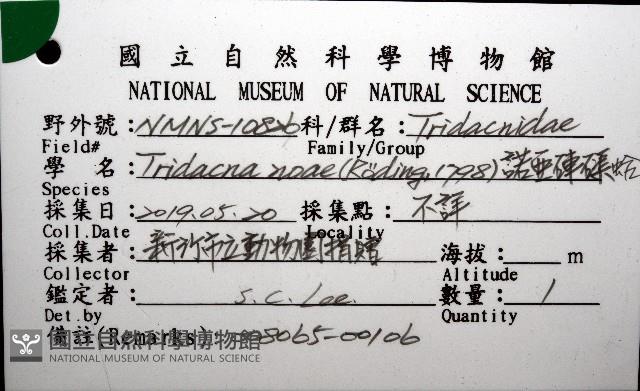 國立自然科學博物館
NATIONAL MUSEUM OF NATURAL SCIENCE
野外號：NMNS-10826 科/群名：Tridacnidae
Field# Family/Group
學 名：Tridacna noae (Röding, 1798) 諾亞硨磲蛤
Species
採集日：2019.05.20 採集點：不詳
Coll.Date Locality
採集者：新竹市立動物園捐贈 海拔： m
Collector Altitude
鑑定者：S.C. Lee. 數量：1
Det.by Quantity
備註(Remarks) 008065-00106
國立自然科學博物館
NATIONAL MUSEUM OF NATURAL SCIENCE